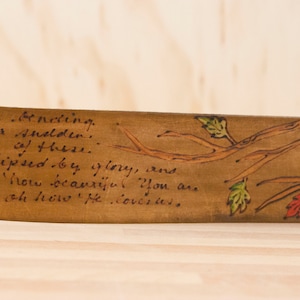 Bending
a sudden
of these
ipsed by glory, and
how beautiful You are
oh how He loves us.